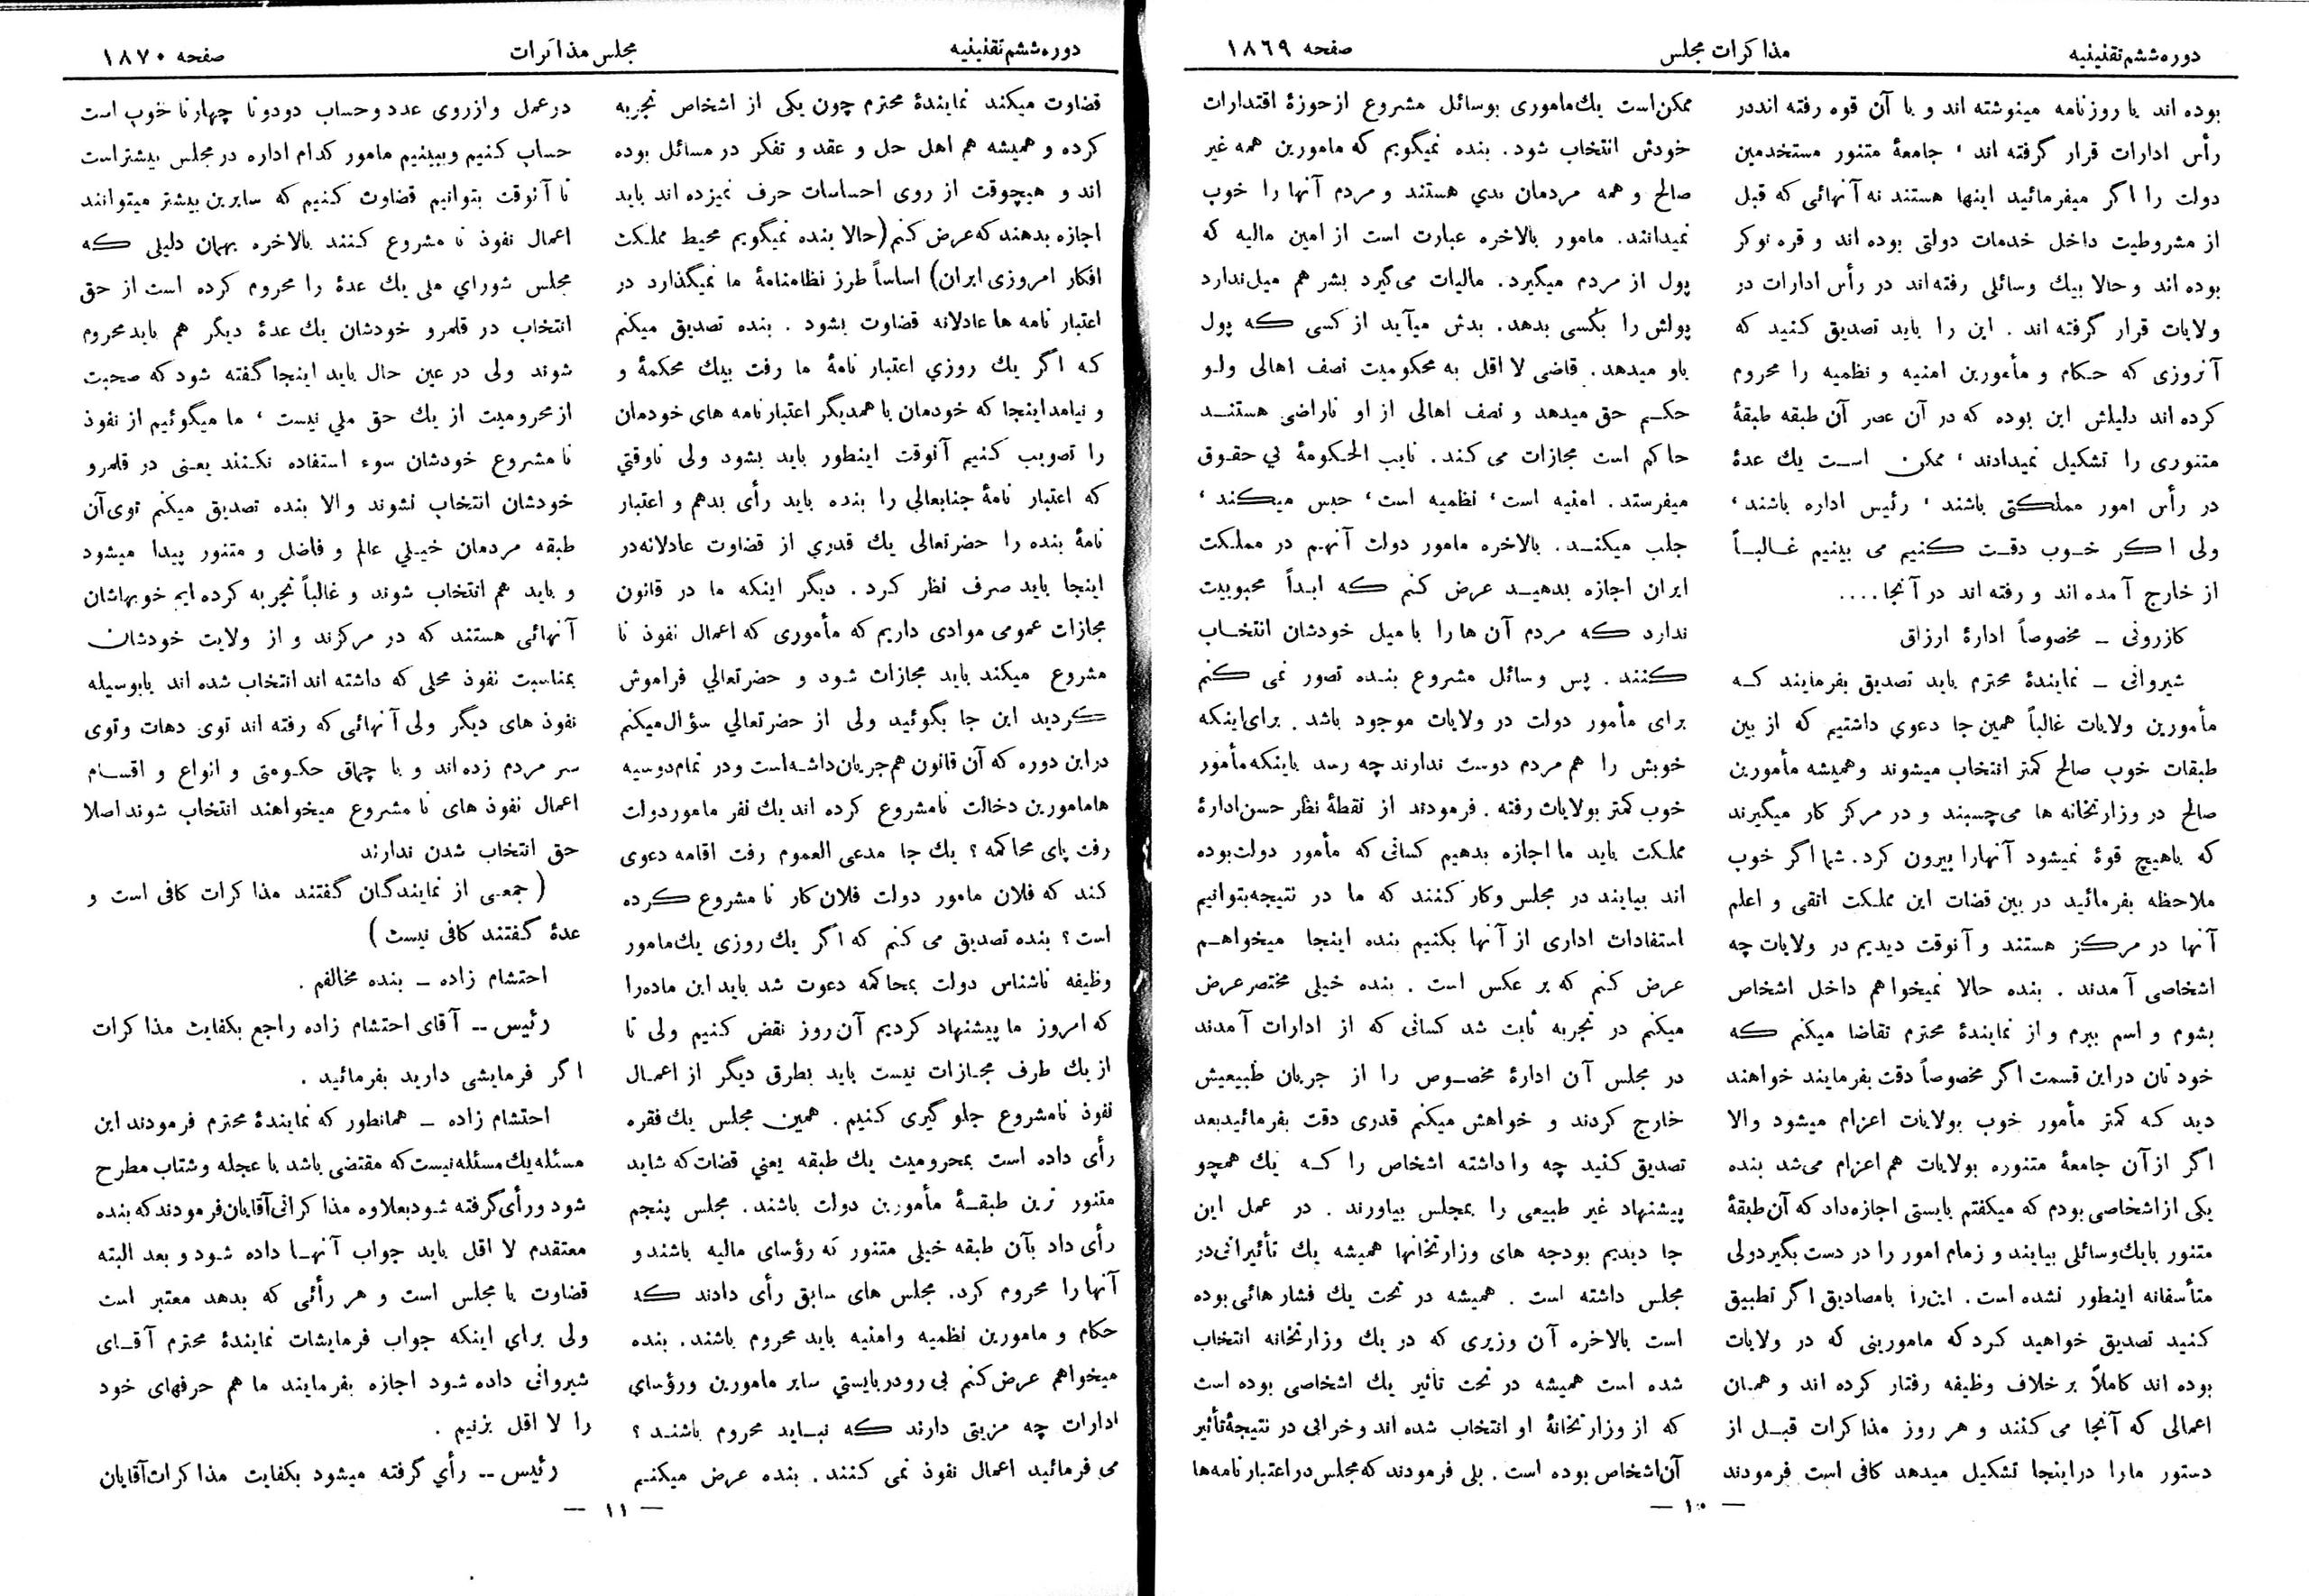 دوره ششم تقنینیه
مذاکرات مجلس
صفحه ۱۸٦۹
بوده اند یا روزنامه مینوشته اند و با آن قوه رفته اند در
رأس ادارات قرار گرفته اند، جامعهٔ متنور مستخدمین
دولت را اگر میفرمائید اینها هستند نه آنهائی که قبل
از مشروطیت داخل خدمات دولتی بوده اند و قره نوکر
بوده اند و حالا بیك وسائلی رفته اند در رأس ادارات در
ولایات قرار گرفته اند . این را باید تصدیق کنید که
آنروزی که حکام و مأمورین امنیه و نظمیه را محروم
کرده اند دلیلش این بوده که در آن عصر آن طبقه طبقهٔ
متنوری را تشکیل نمیدادند، ممکن است یك عدهٔ
در رأس امور مملکتی باشند ، رئیس اداره باشند ،
ولی اگر خوب دقت کنیم می بینیم غالباً
از خارج آمده اند و رفته اند در آنجا....
کازرونی ــ مخصوصاً ادارهٔ ارزاق
شیروانی ــ نمایندهٔ محترم باید تصدیق بفرمایند که
مأمورین ولایات غالباً همین جا دعوی داشتیم که از بین
طبقات خوب صالح کمتر انتخاب میشوند و همیشه مأمورین
صالح در وزارتخانه ها می‌چسبند و در مرکز کار میگیرند
که باهیچ قوهٔ نمیشود آنهارا بیرون کرد. شما اگر خوب
ملاحظه بفرمائید در بین قضات این مملکت اتقی و اعلم
آنها در مرکز هستند و آنوقت دیدیم در ولایات چه
اشخاصی آمدند . بنده حالا نمیخواهم داخل اشخاص
بشوم و اسم ببرم و از نمایندهٔ محترم تقاضا میکنم که
خودتان در این قسمت اگر مخصوصاً دقت بفرمایند خواهند
دید که کمتر مأمور خوب بولایات اعزام میشود والا
اگر از آن جامعهٔ متنوره بولایات هم اعزام می‌شد بنده
یکی از اشخاصی بودم که میگفتم بایستی اجازه داد که آن طبقهٔ
متنور بایك وسائلی بیایند و زمام امور را در دست بگیرد ولی
متأسفانه اینطور نشده است . این را بامصادیق اگر تطبیق
کنید تصدیق خواهید کرد که مامورینی که در ولایات
بوده اند کاملاً بر خلاف وظیفه رفتار کرده اند و همان
اعمالی که آنجا می کنند و هر روز مذاکرات قبل از
دستور مارا در اینجا تشکیل میدهد کافی است فرمودند
ممکن است یك ماموری بوسائل مشروع از حوزهٔ اقتدارات
خودش انتخاب شود. بنده نمیگویم که مامورین همه غیر
صالح و همه مردمان بدي هستند و مردم آنها را خوب
نمیدانند. مامور بالاخره عبارت است از امین مالیه که
پول از مردم میگیرد. مالیات می‌گیرد بشر هم میل ندارد
پولش را بکسی بدهد. بدش میآید از کسی که پول
باو میدهد. قاضی لااقل به محکومیت نصف اهالی ولو
حکم حق میدهد و نصف اهالی از او ناراضی هستند
حاکم است مجازات می کند. نایب الحکومهٔ بی حقوق
میفرستد. امنیه است، نظمیه است، حبس میکند،
جلب میکند. بالاخره مامور دولت آنهم در مملکت
ایران اجازه بدهید عرض کنم که ابداً محبوبیت
ندارد که مردم آن ها را با میل خودشان انتخاب
کنند. پس وسائل مشروع بنده تصور نمی کنم
برای مأمور دولت در ولایات موجود باشد. برای اینکه
خوبش را هم مردم دوست ندارند چه رسد باینکه مأمور
خوب کمتر بولایات رفته . فرمودند از نقطهٔ نظر حسن ادارهٔ
مملکت باید ما اجازه بدهیم کسانی که مأمور دولت بوده
اند بیایند در مجلس وکار کنند که ما در نتیجه بتوانیم
استفادات اداری از آنها بکنیم بنده اینجا میخواهم
عرض کنم که بر عکس است . بنده خیلی مختصر عرض
میکنم در تجربه ثابت شد کسانی که از ادارات آمدند
در مجلس آن ادارهٔ مخصوص را از جریان طبیعیش
خارج کردند و خواهش میکنم قدری دقت بفرمائید بعد
تصدیق کنید چه واداشته اشخاص را که یك همچو
پیشنهاد غیر طبیعی را بمجلس بیاورند . در عمل این
جا دیدیم بودجه های وزارتخانها همیشه یك تأثیراتی در
مجلس داشته است . همیشه در تحت یك فشار هائی بوده
است بالاخره آن وزیری که در یك وزارتخانه انتخاب
شده است همیشه در تحت تاثیر یك اشخاصی بوده است
که از وزارتخانهٔ او انتخاب شده اند و خرابی در نتیجهٔ تأثیر
آن اشخاص بوده است . بلی فرمودند که مجلس در اعتبارنامه ها
— ۱۰ —
دوره ششم تقنینیه
مجلس مذاکرات
صفحه ۱۸۷۰
قضاوت میکند نمایندهٔ محترم چون یکی از اشخاص تجربه
کرده و همیشه هم اهل حل و عقد و تفکر در مسائل بوده
اند و هیچوقت از روی احساسات حرف نمیزده اند باید
اجازه بدهند که عرض کنم (حالا بنده نمیگویم محیط مملکت
افکار امروزی ایران) اساساً طرز نظامنامهٔ ما نمیگذارد در
اعتبار نامه ها عادلانه قضاوت بشود . بنده تصدیق میکنم
که اگر یك روزي اعتبار نامهٔ ما رفت بیك محکمهٔ و
و نیامد اینجا که خودمان با همدیگر اعتبارنامه های خودمان
را تصویب کنیم آنوقت اینطور باید بشود ولی تاوقتي
که اعتبار نامهٔ جنابعالي را بنده باید رأی بدهم و اعتبار
نامهٔ بنده را حضرتعالی یك قدري از قضاوت عادلانه در
اینجا باید صرف نظر کرد . دیگر اینکه ما در قانون
مجازات عمومی موادی داریم که مأموری که اعمال نفوذ نا
مشروع میکند باید مجازات شود و حضرتعالي فراموش
کردید این جا بگوئید ولی از حضرتعالي سؤال میکنم
در این دوره که آن قانون هم جریان داشته است و در تمام دوسیه
ها مامورین دخالت نامشروع کرده اند یك نفر مامور دولت
رفت پای محاکمه ؟ یك جا مدعی العموم رفت اقامه دعوی
کند که فلان مامور دولت فلان کار نا مشروع کرده
است ؟ بنده تصدیق می کنم که اگر یك روزی یك مامور
وظیفه ناشناس دولت بمحاکمه دعوت شد باید این ماده را
که امروز ما پیشنهاد کردیم آن روز نقض کنیم ولی تا
از یك طرف مجازات نیست باید بطرق دیگر از اعمال
نفوذ نامشروع جلوگیری کنیم. همین مجلس یك فقره
رأی داده است بمحرومیت یك طبقه یعني قضات که شاید
متنور ترین طبقهٔ مأمورین دولت باشند. مجلس پنجم
رأی داد بآن طبقه خیلی متنور که رؤسای مالیه باشند و
آنها را محروم کرد. مجلس های سابق رأی دادند که
حکام و مامورین نظمیه وامنیه باید محروم باشند. بنده
میخواهم عرض کنم بی رودربایستي سایر مامورین ورؤسای
ادارات چه مزیتی دارند که نباید محروم باشند ؟
می فرمائید اعمال نفوذ نمی کنند. بنده عرض میکنم
در عمل وازروی عدد وحساب دودو تا چهارتا خوب است
حساب کنیم و ببینیم مامور کدام اداره در مجلس بیشتر است
تا آنوقت بتوانیم قضاوت کنیم که سایرین بیشتر میتوانند
اعمال نفوذ نا مشروع کنند بالاخره بهمان دلیلی که
مجلس شوراي ملی یك عدهٔ را محروم کرده است از حق
انتخاب در قلمرو خودشان یك عدهٔ دیگر هم باید محروم
شوند ولی در عین حال باید اینجا گفته شود که صحبت
از محرومیت از یك حق ملي نیست ، ما میگوئیم از نفوذ
نا مشروع خودشان سوء استفاده نکنند یعنی در قلمرو
خودشان انتخاب نشوند والا بنده تصدیق میکنم توی آن
طبقه مردمان خیلي عالم و فاضل و متنور پیدا میشود
و باید هم انتخاب شوند و غالباً تجربه کرده ایم خوبهاشان
آنهائی هستند که در مرکزند و از ولایت خودشان
بمناسبت نفوذ محلی که داشته اند انتخاب شده اند یابوسیله
نفوذ های دیگر ولی آنهائی که رفته اند توی دهات و توی
سر مردم زده اند و با چماق حکومتی و انواع و اقسام
اعمال نفوذ های نا مشروع میخواهند انتخاب شوند اصلا
حق انتخاب شدن ندارند
( جمعی از نمایندگان گفتند مذاکرات کافی است و
عدهٔ گفتند کافی نیست )
احتشام زاده ــ بنده مخالفم .
رئیس ــ آقای احتشام زاده راجع بکفایت مذاکرات
اگر فرمایشی دارید بفرمائید .
احتشام زاده ــ همانطور که نمایندهٔ محترم فرمودند این
مسئله یك مسئله نیست که مقتضی باشد با عجله و شتاب مطرح
شود و رأی گرفته شود بعلاوه مذاکراتی آقایان فرمودند که بنده
معتقدم لااقل باید جواب آنها داده شود و بعد البته
قضاوت با مجلس است و هر رأئی که بدهد معتبر است
ولی براي اینکه جواب فرمایشات نمایندهٔ محترم آقای
شیروانی داده شود اجازه بفرمایند ما هم حرفهای خود
را لااقل بزنیم .
رئیس ــ رأي گرفته میشود بکفایت مذاکرات آقایان
— ۱۱ —